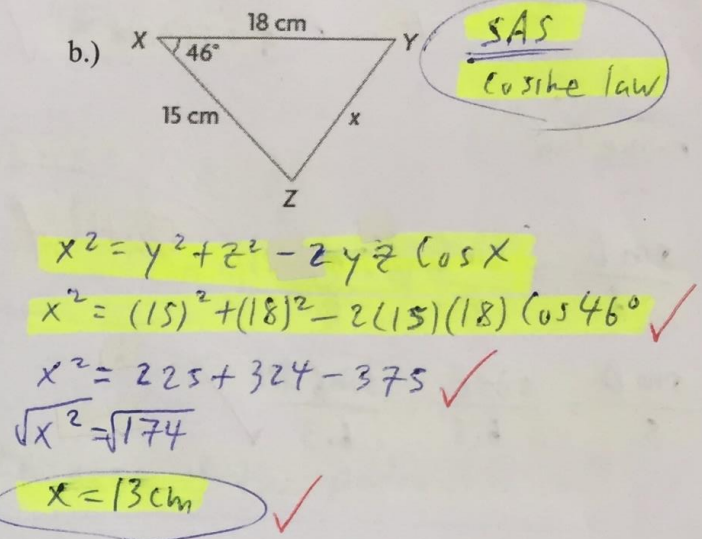 b.)
X 18 cm Y
46°
15 cm
x
Z
SAS
Cosine law
x² = y² + z² - 2yz Cos X
x² = (15)² + (18)² - 2(15)(18) Cos 46°
x² = 225 + 324 - 375
√x² = √174
x = 13 cm